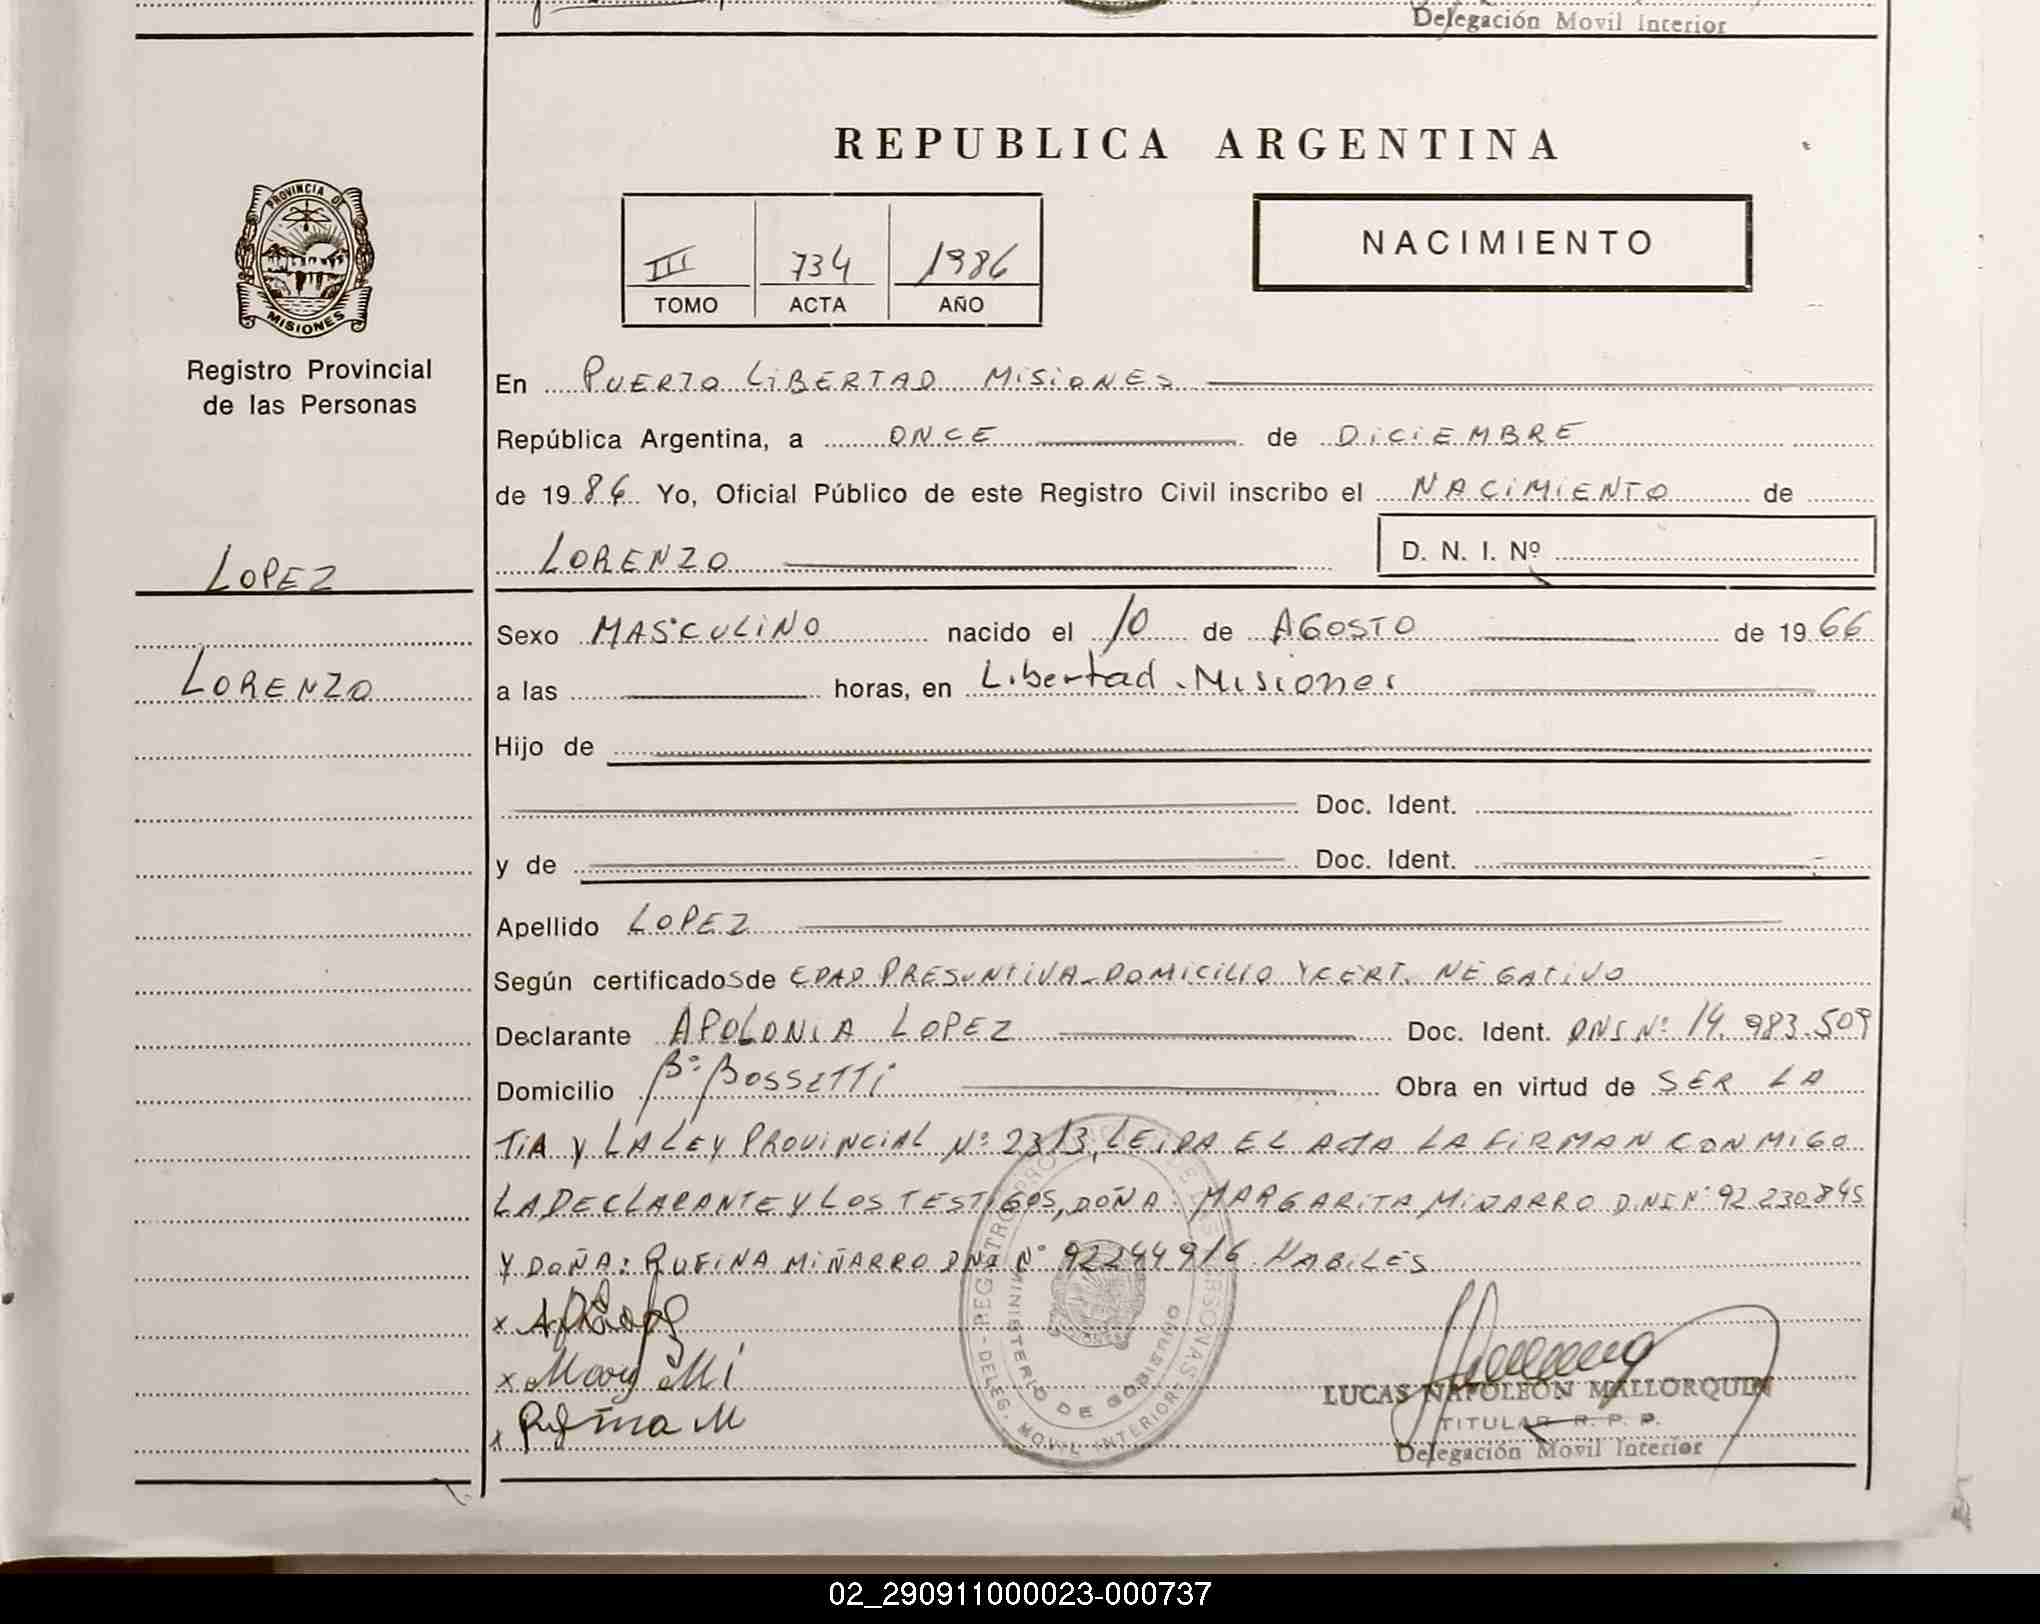 Delegación Movil Interior
REPUBLICA ARGENTINA
PROVINCIA DE
MISIONES
Registro Provincial
de las Personas
III 734 1986
TOMO ACTA AÑO
NACIMIENTO
En PUERTO LIBERTAD MISIONES
República Argentina, a ONCE de DICIEMBRE
de 1986 Yo, Oficial Público de este Registro Civil inscribo el NACIMIENTO de
LORENZO D. N. I. Nº
LOPEZ
Sexo MASCULINO nacido el 10 de AGOSTO de 1966
LORENZO
a las horas, en Libertad - Misiones
Hijo de
Doc. Ident.
y de Doc. Ident.
Apellido LOPEZ
Según certificados de EDAD PRESUNTIVA - DOMICILIO Y CERT. NEGATIVO
Declarante APOLONIA LOPEZ Doc. Ident. DNI Nº 14.983.509
Domicilio Bº BOSSETTI Obra en virtud de SER LA
TIA Y LA LEY PROVINCIAL Nº 2313, LEIDA EL ACTA LA FIRMAN CONMIGO
LA DECLARANTE Y LOS TESTIGOS, DOÑA: MARGARITA MIÑARRO D.N.I Nº 92.230.845
Y DOÑA: RUFINA MIÑARRO DNI Nº 92244916 HABILES
REGISTRO PROVINCIAL DE LAS PERSONAS - DELEG. MOVIL INTERIOR -
MINISTERIO DE GOBIERNO
x
x Marg Mi
x Rufina M
LUCAS NAPOLEON MALLORQUIN
TITULAR R. P. P.
Delegación Movil Interior
02_290911000023-000737